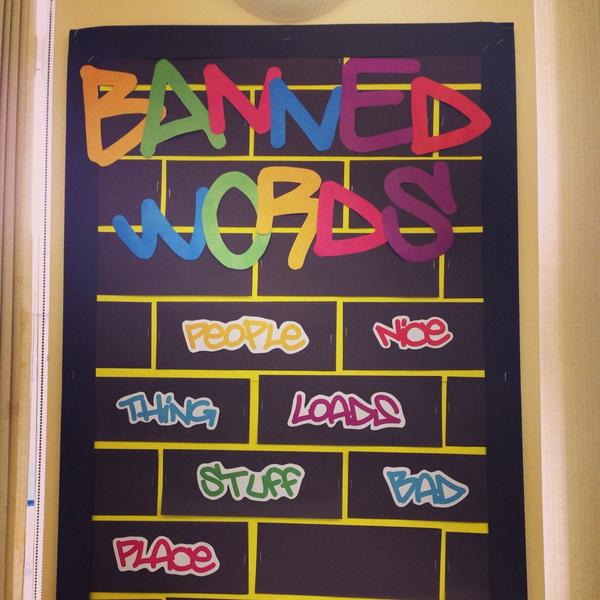 BANNED
WORDS
PEOPLE NiCE
THiNG LOADS
STUFF BAD
PLACE